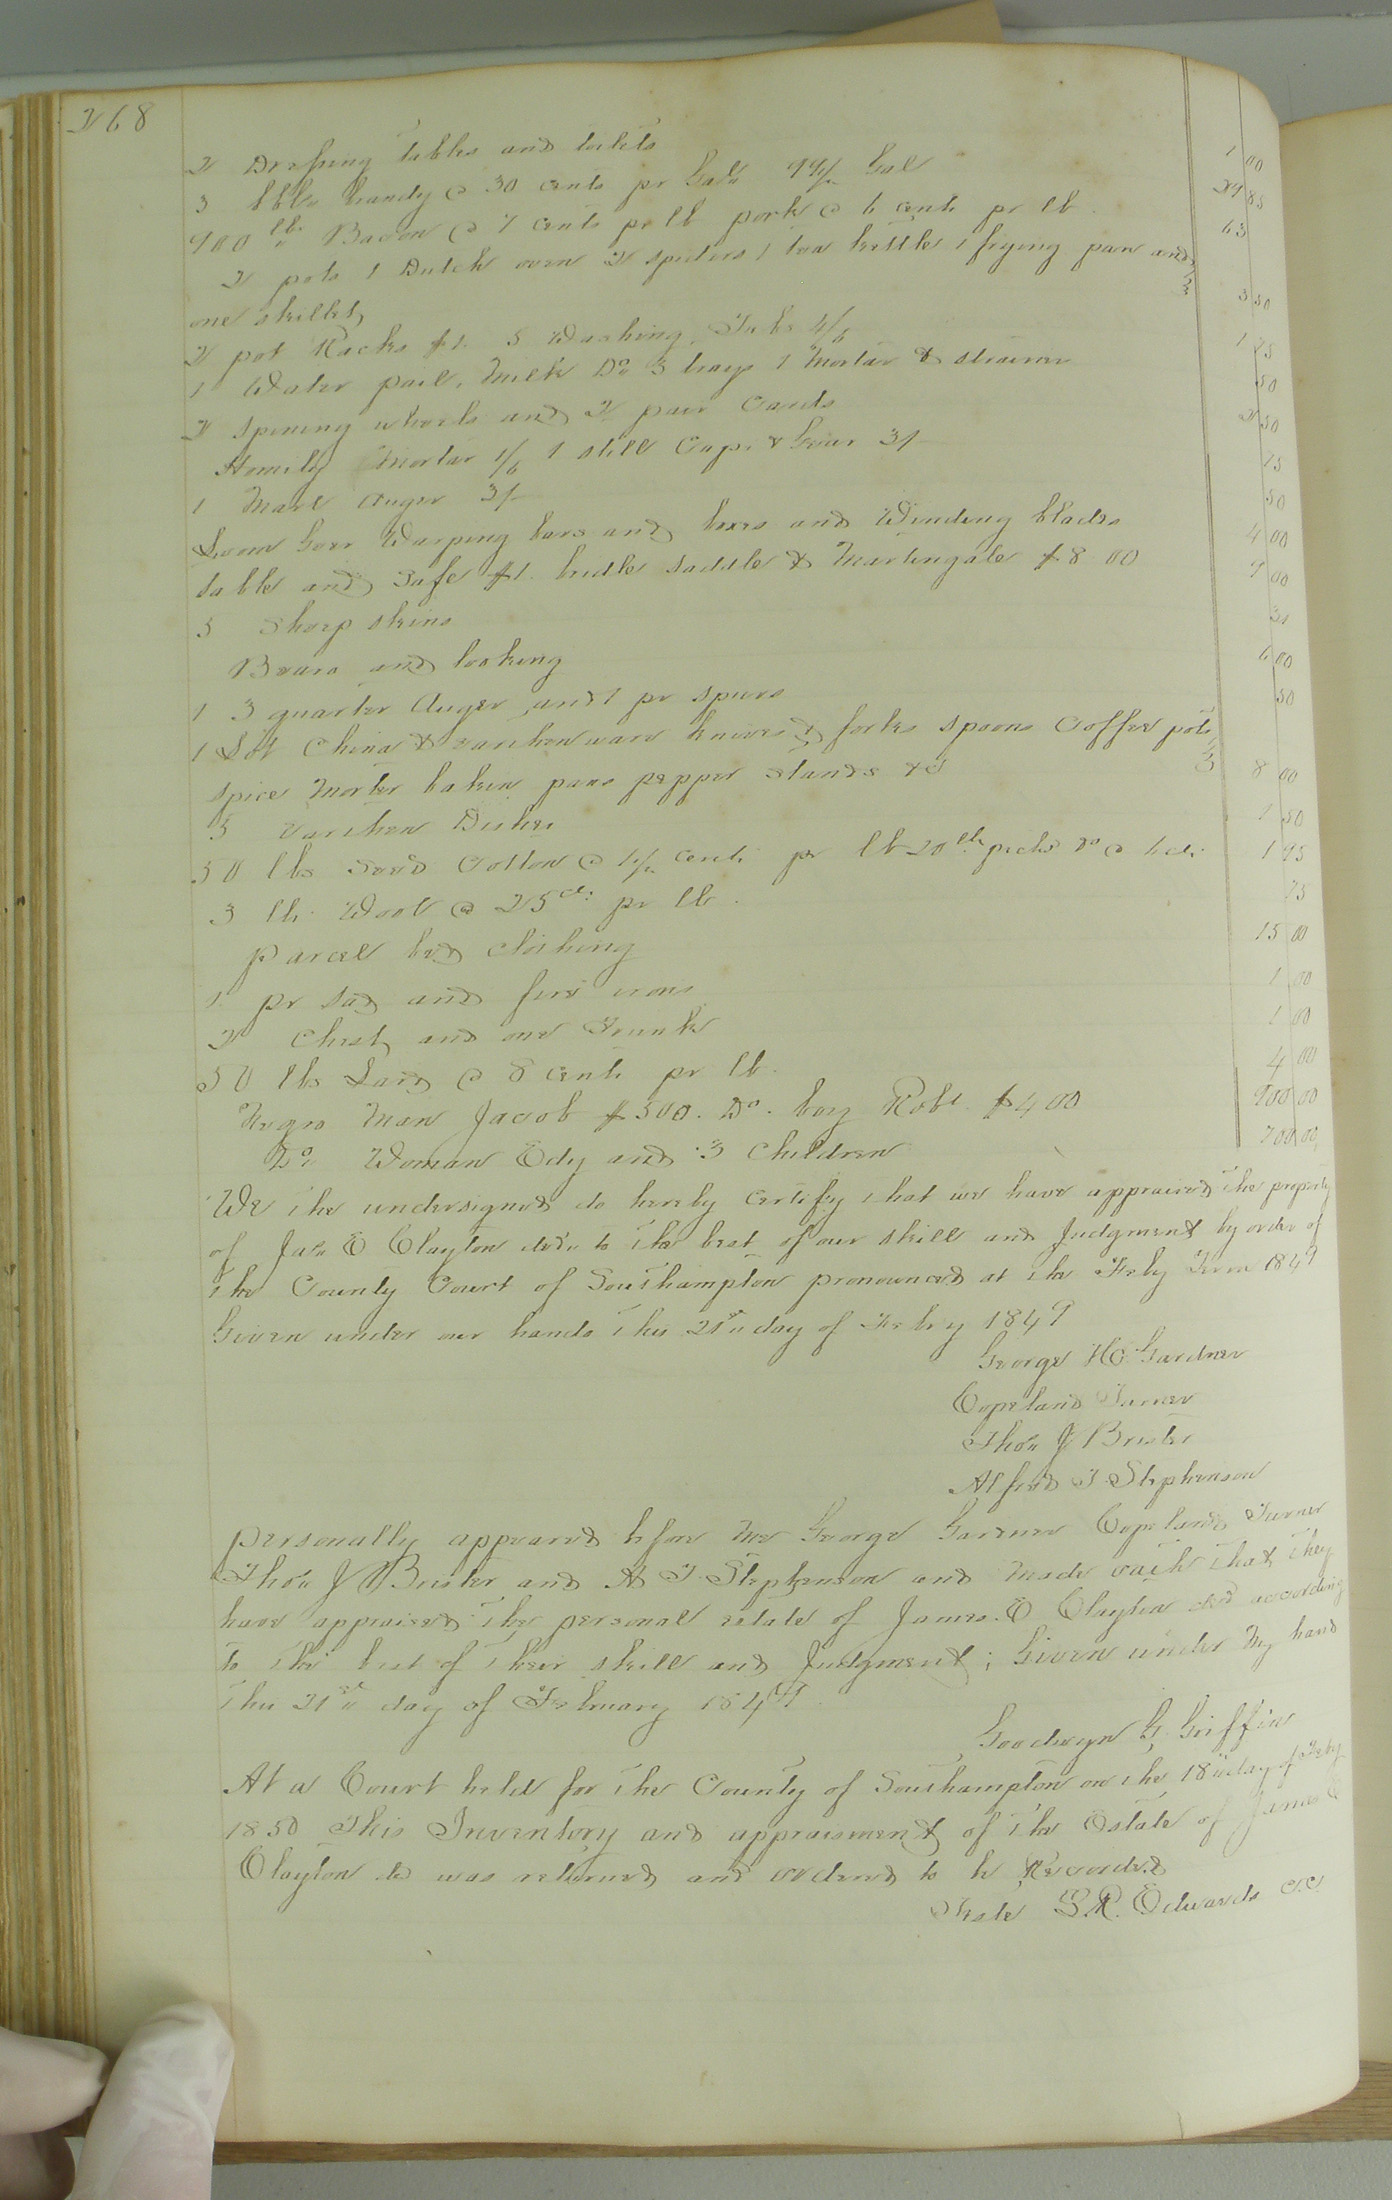 268
2 Dressing tables and toilets 1 00
3 bbls brandy @ 30 cents pr Gals 99½ Gal 29 85
900 lbs Bacon @ 7 cents pr lb pork @ 6 cents pr lb. 63
2 pots 1 Dutch oven 2 spiders 1 tea kettle 1 frying pan and
one skillet, 3 50
2 pot Racks $1. 5 Washing Tubs 4/6 1 75
1 Water pail, Milk Do 3 trays 1 Mortar & strainer 50
2 spining wheels and 2 pair Cards 2 50
Homily Mortar 1/6 1 still Cap & Gear 3/ 75
1 Marl Auger 3/ 50
Loom Gear Warping bars and boxes and Winding blades 4 00
table and Safe $1. bridle saddle & Martingale $8 00 9 00
5 Sheep skins 30
Beauro and looking 6 00
1 3 quarter Auger and 1 pr spurs 50
1 Lot China & earthenware knives & forks spoons Coffee pots
spice Morter baken pans pepper stands &c 8 00
5 earthen Dishes 1 50
50 lbs seed Cotton @ 1½ cents pr lb 20 lbs picked do @ 6 cts 1 95
3 lbs Wool @ 25 cts pr lb. 75
parcel bed clothing 15 00
1 pr dog and fire irons 1 00
2 Chest and one Trunk 1 00
50 lbs Lard @ 8 cents pr lb. 4 00
Negro Man Jacob $500. Do. boy Robt. $400 900 00
Do Woman Edy and 3 Children 700 00
We the undersigned do hereby certify that we have appraised the property
of Jas E Clayton decd to the best of our skill and Judgment by order of
the County Court of Southampton pronounced at the Feby Term 1849
Given under our hands this 21st day of Feby 1849
George H Gardner
Copeland Turner
Thos J Brister
Alfred T Stephenson
personally appeared before me George Gardner Copeland Turner
Thos J Brister and A T Stephenson and made oath that they
have appraised the personal estate of James E Clayton decd according
to the best of their skill and Judgment; Given under my hand
this 21st day of February 1849.
Goodwyn G. Griffin
At a Court held for the County of Southampton on the 18th day of Feby
1850 This Inventory and appraisment of the Estate of James E
Clayton dd was returned and ordered to be Recorded
Teste L R. Edwards C.C.